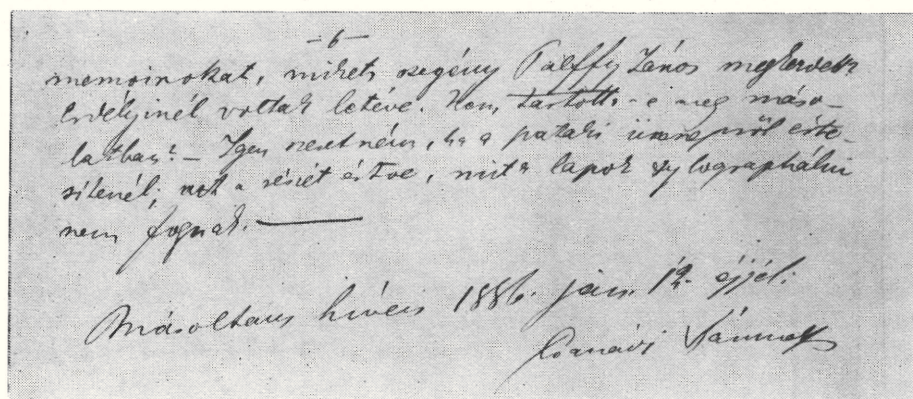 -6-
memoirokat, miket szegény Pálffy János megkezdett
Erdélyinél voltak letéve. Nem tartott-e meg máso-
latban? – Igen szeretném, ha a pataki ünnepről érte-
sítenél; azt a részét értve, mit a lapok xylographálni
nem fognak.
Másoltam híven 1886. jan. 12. éjjél.
Csanádi Sámuel